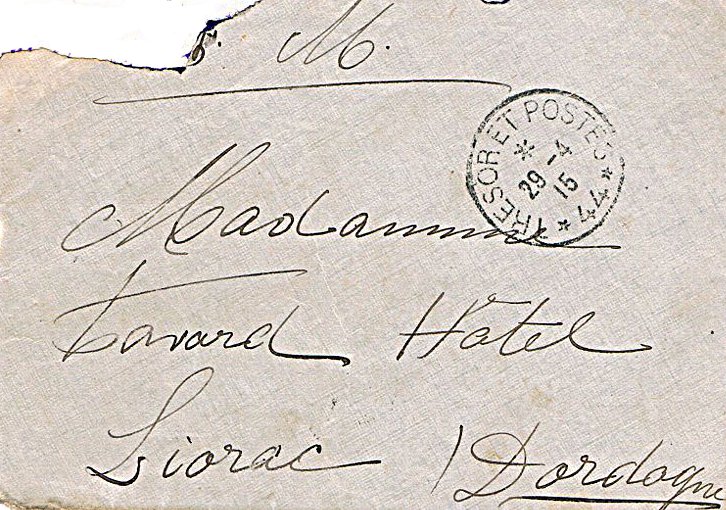 F. M.
TRESOR ET POSTES
* 29-4 15
* 44 *
Madamme
Favard Hôtel
Liorac (Dordogne